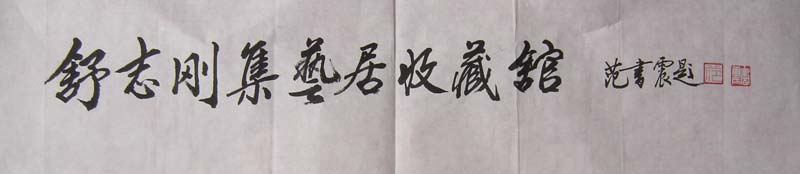 舒志刚集藝居收藏舘 范書震题